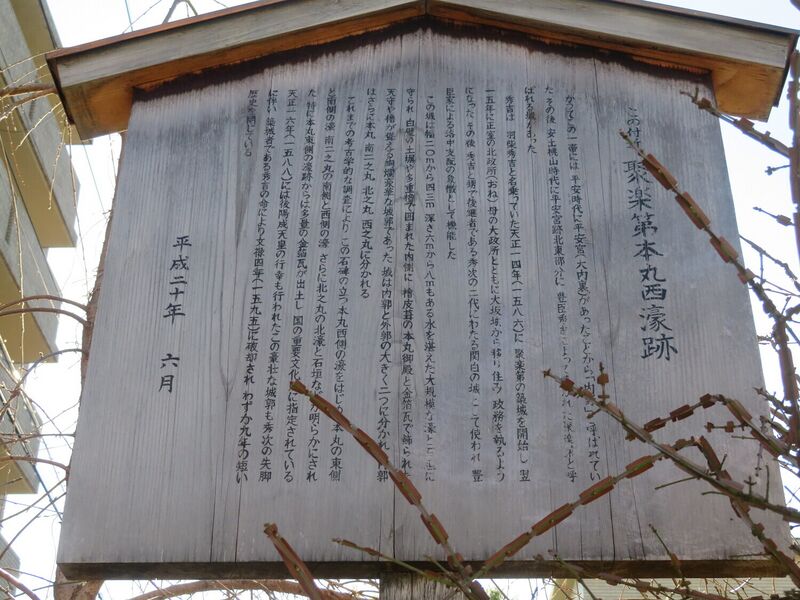 この付近 聚楽第本丸西濠跡
かつてこの一帯には 平安時代に平安宮(大内裏)があったことから「内野」と呼ばれてい
た その後 安土桃山時代に平安宮跡北東部分に 豊臣秀吉によって築かれた聚楽第と呼
ばれる城があった
秀吉は 羽柴秀吉と名乗っていた天正一四年(一五八六)に 聚楽第の築城を開始し 翌
一五年に正室の北政所(おね) 母の大政所とともに大坂城から移り住み 政務を執るよう
になった その後 秀吉と甥で後継者である秀次の二代にわたる関白の城として使われ 豊
臣家による洛中支配の象徴として機能した
この城は幅二〇mから四三m 深さ六mから八mもある水を湛えた大規模な濠と石垣に
守られ 白壁の土塀や多重櫓で囲まれた内側に 檜皮葺の本丸御殿と金箔瓦で飾られた
天守や櫓が聳える絢爛豪華な城郭であった 城は内郭と外郭の大きく二つに分かれ 内郭
はさらに本丸 南二之丸 北之丸 西之丸に分かれる
これまでの考古学的な調査により この石碑の立つ本丸西側の濠をはじめ 本丸の東側
と南側の濠 南二之丸の南側と西側の濠 さらに北之丸の北濠と石垣などが明らかにされ
た 特に本丸東側の濠跡からは多量の金箔瓦が出土し 国の重要文化財に指定されている
天正一六年(一五八八)には後陽成天皇の行幸も行われたこの豪壮な城郭も秀次の失脚
に伴い 築城者である秀吉の命により文禄四年(一五九五)に破却され わずか九年の短い
歴史を閉じている
平成二十年 六月